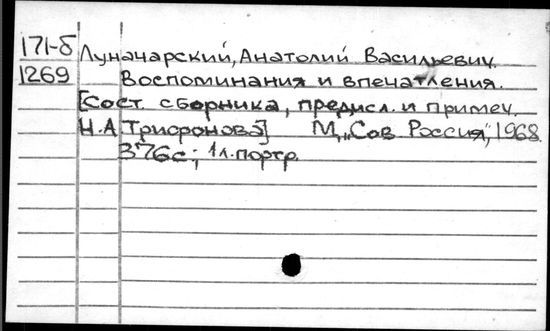 171-б Луначарский, Анатолий Васильевич.
1269 Воспоминания и впечатления.
[Сост. сборника, предисл. и примеч.
Н.А Трифонова] М., „Сов Россия", 1968.
376с; 1л. портр.